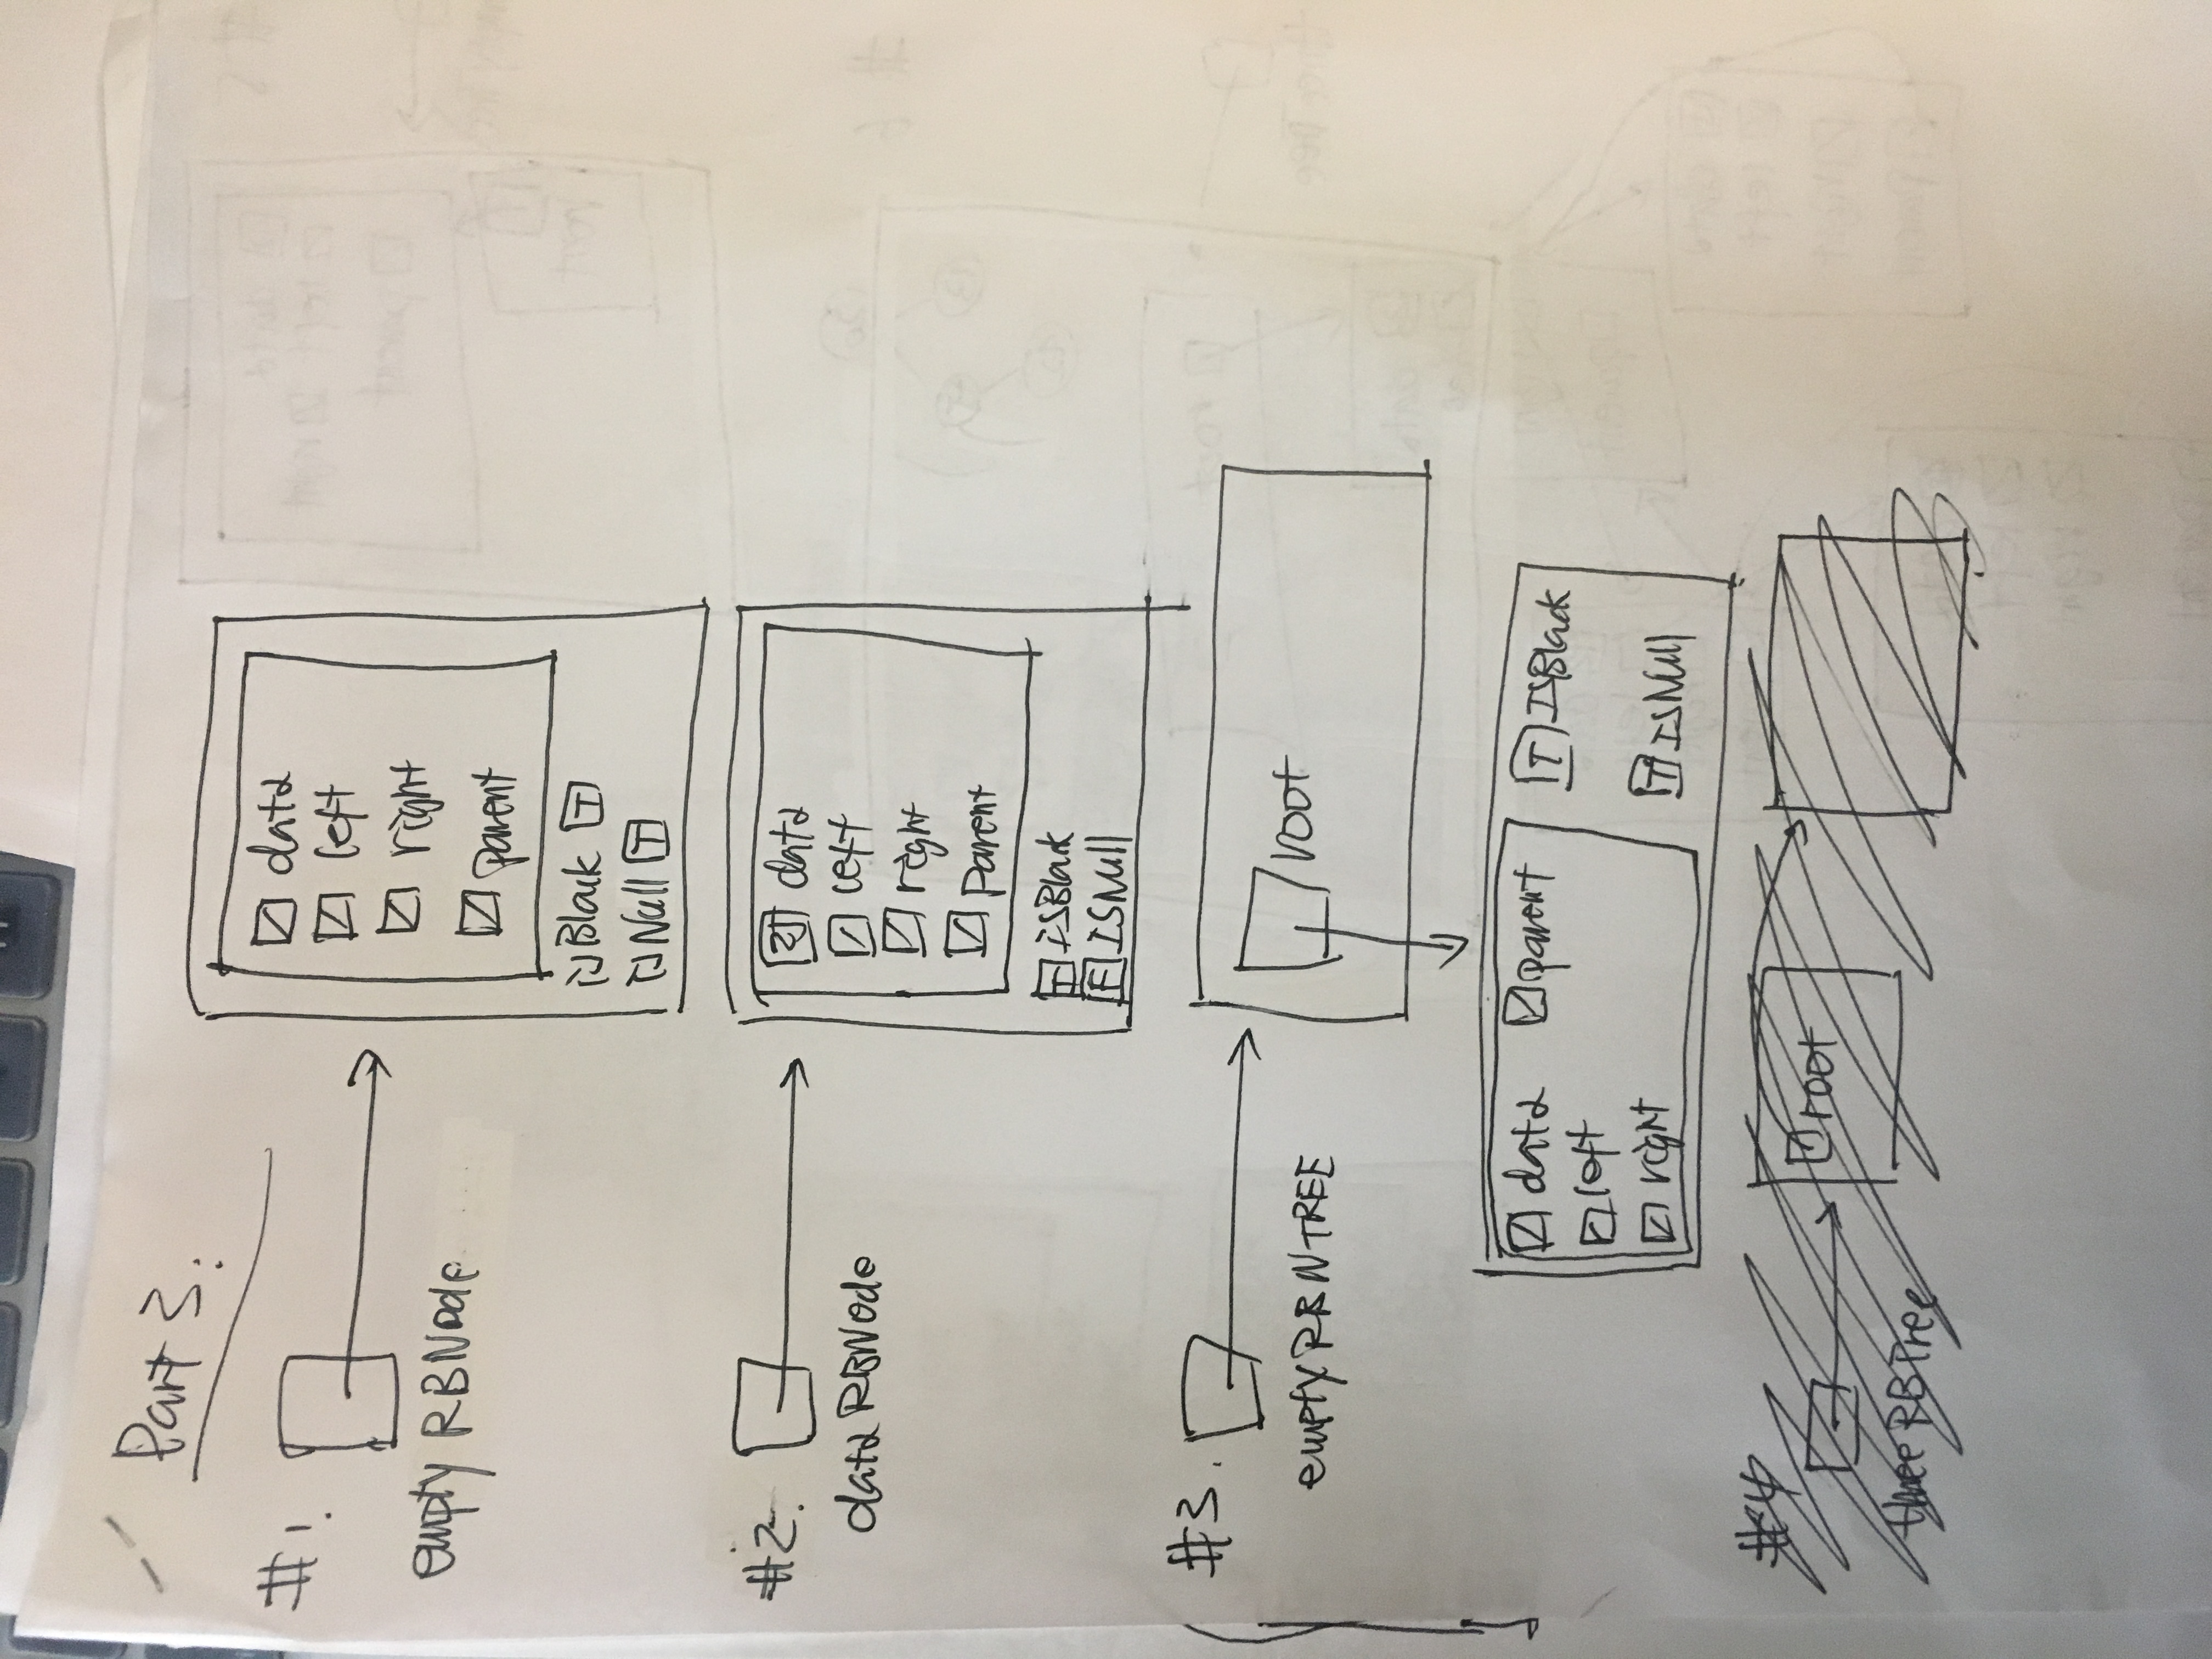 Part 3:
#1.
empty RBNode
data
left
right
parent
isBlack T
isNull T
#2.
data RBNode
data
left
right
Parent
T ISBlack
F ISNull
#3.
empty RBNTREE
root
data parent
left
right
T ISBlack
T ISNull
#4
root
three RBTree